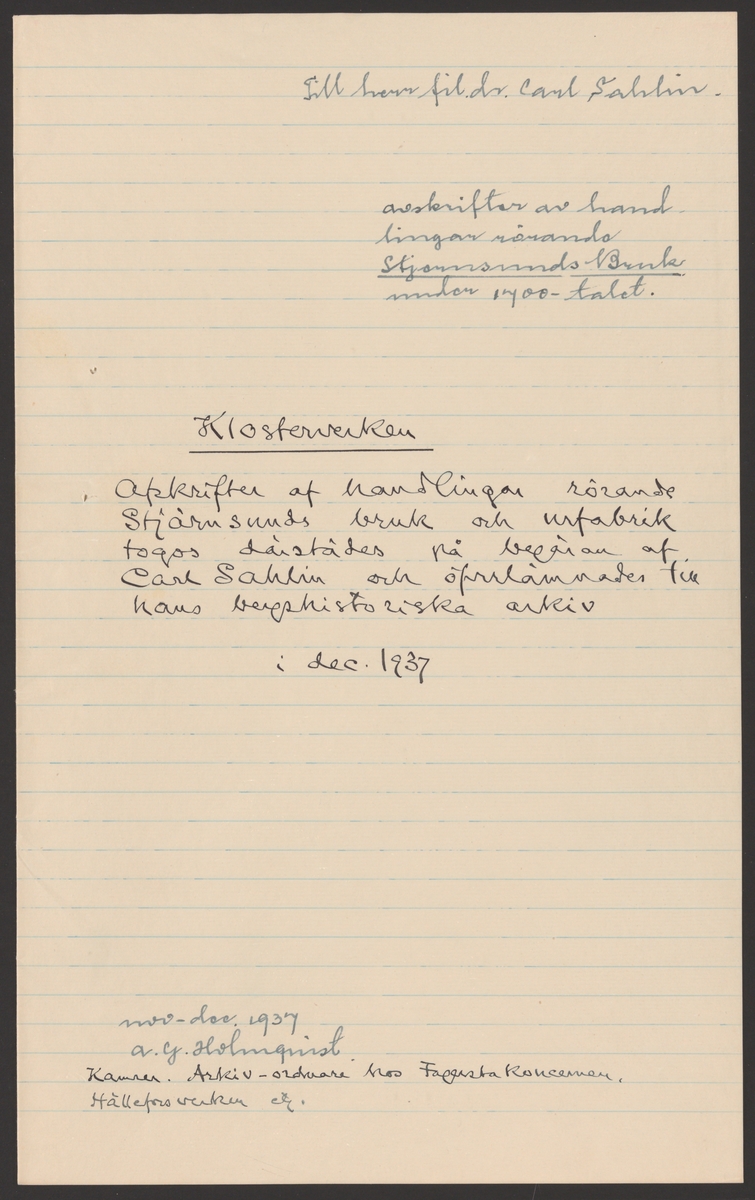 Till herr fil.dr. Carl Sahlin.
avskrifter av hand
lingar rörande
Stjernsunds Bruk
under 1700-talet.
Klosterverken
Afskrifter af handlingar rörande
Stjärnsunds bruk och urfabrik
togos därstädes på begäran af
Carl Sahlin och öfverlämnades till
hans bergshistoriska arkiv
i dec. 1937
nov-dec. 1937
A.G. Holmquist.
Kamrer. Arkiv-ordnare hos Fagerstakoncernen,
Hälleforsverken etc.